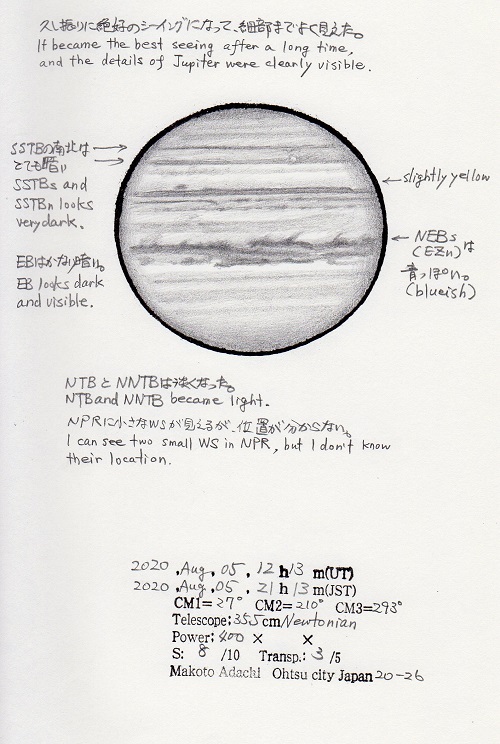 久し振りに絶好のシーイングになって、細部までよく見えた。
It became the best seeing after a long time,
and the details of Jupiter were clearly visible.
SSTBの南北は
とても暗い
SSTBs and
SSTBn looks
very dark.
slightly yellow
NEBs
(EZn)は
青っぽい。
(blueish)
EBはかなり暗い。
EB looks dark
and visible.
NTBとNNTBは淡くなった。
NTB and NNTB became light.
NPRに小さなWSが見えるが、位置が分からない。
I can see two small WS in NPR, but I don't know
their location.
2020 ,Aug, 05, 12 h 13 m(UT)
2020 ,Aug, 05, 21 h 13 m(JST)
CM1= 27° CM2= 210° CM3=293°
Telescope; 35.5 cm Newtonian
Power; 400 × ×
S: 8 /10 Transp.: 3 /5
Makoto Adachi Ohtsu city Japan 20-26